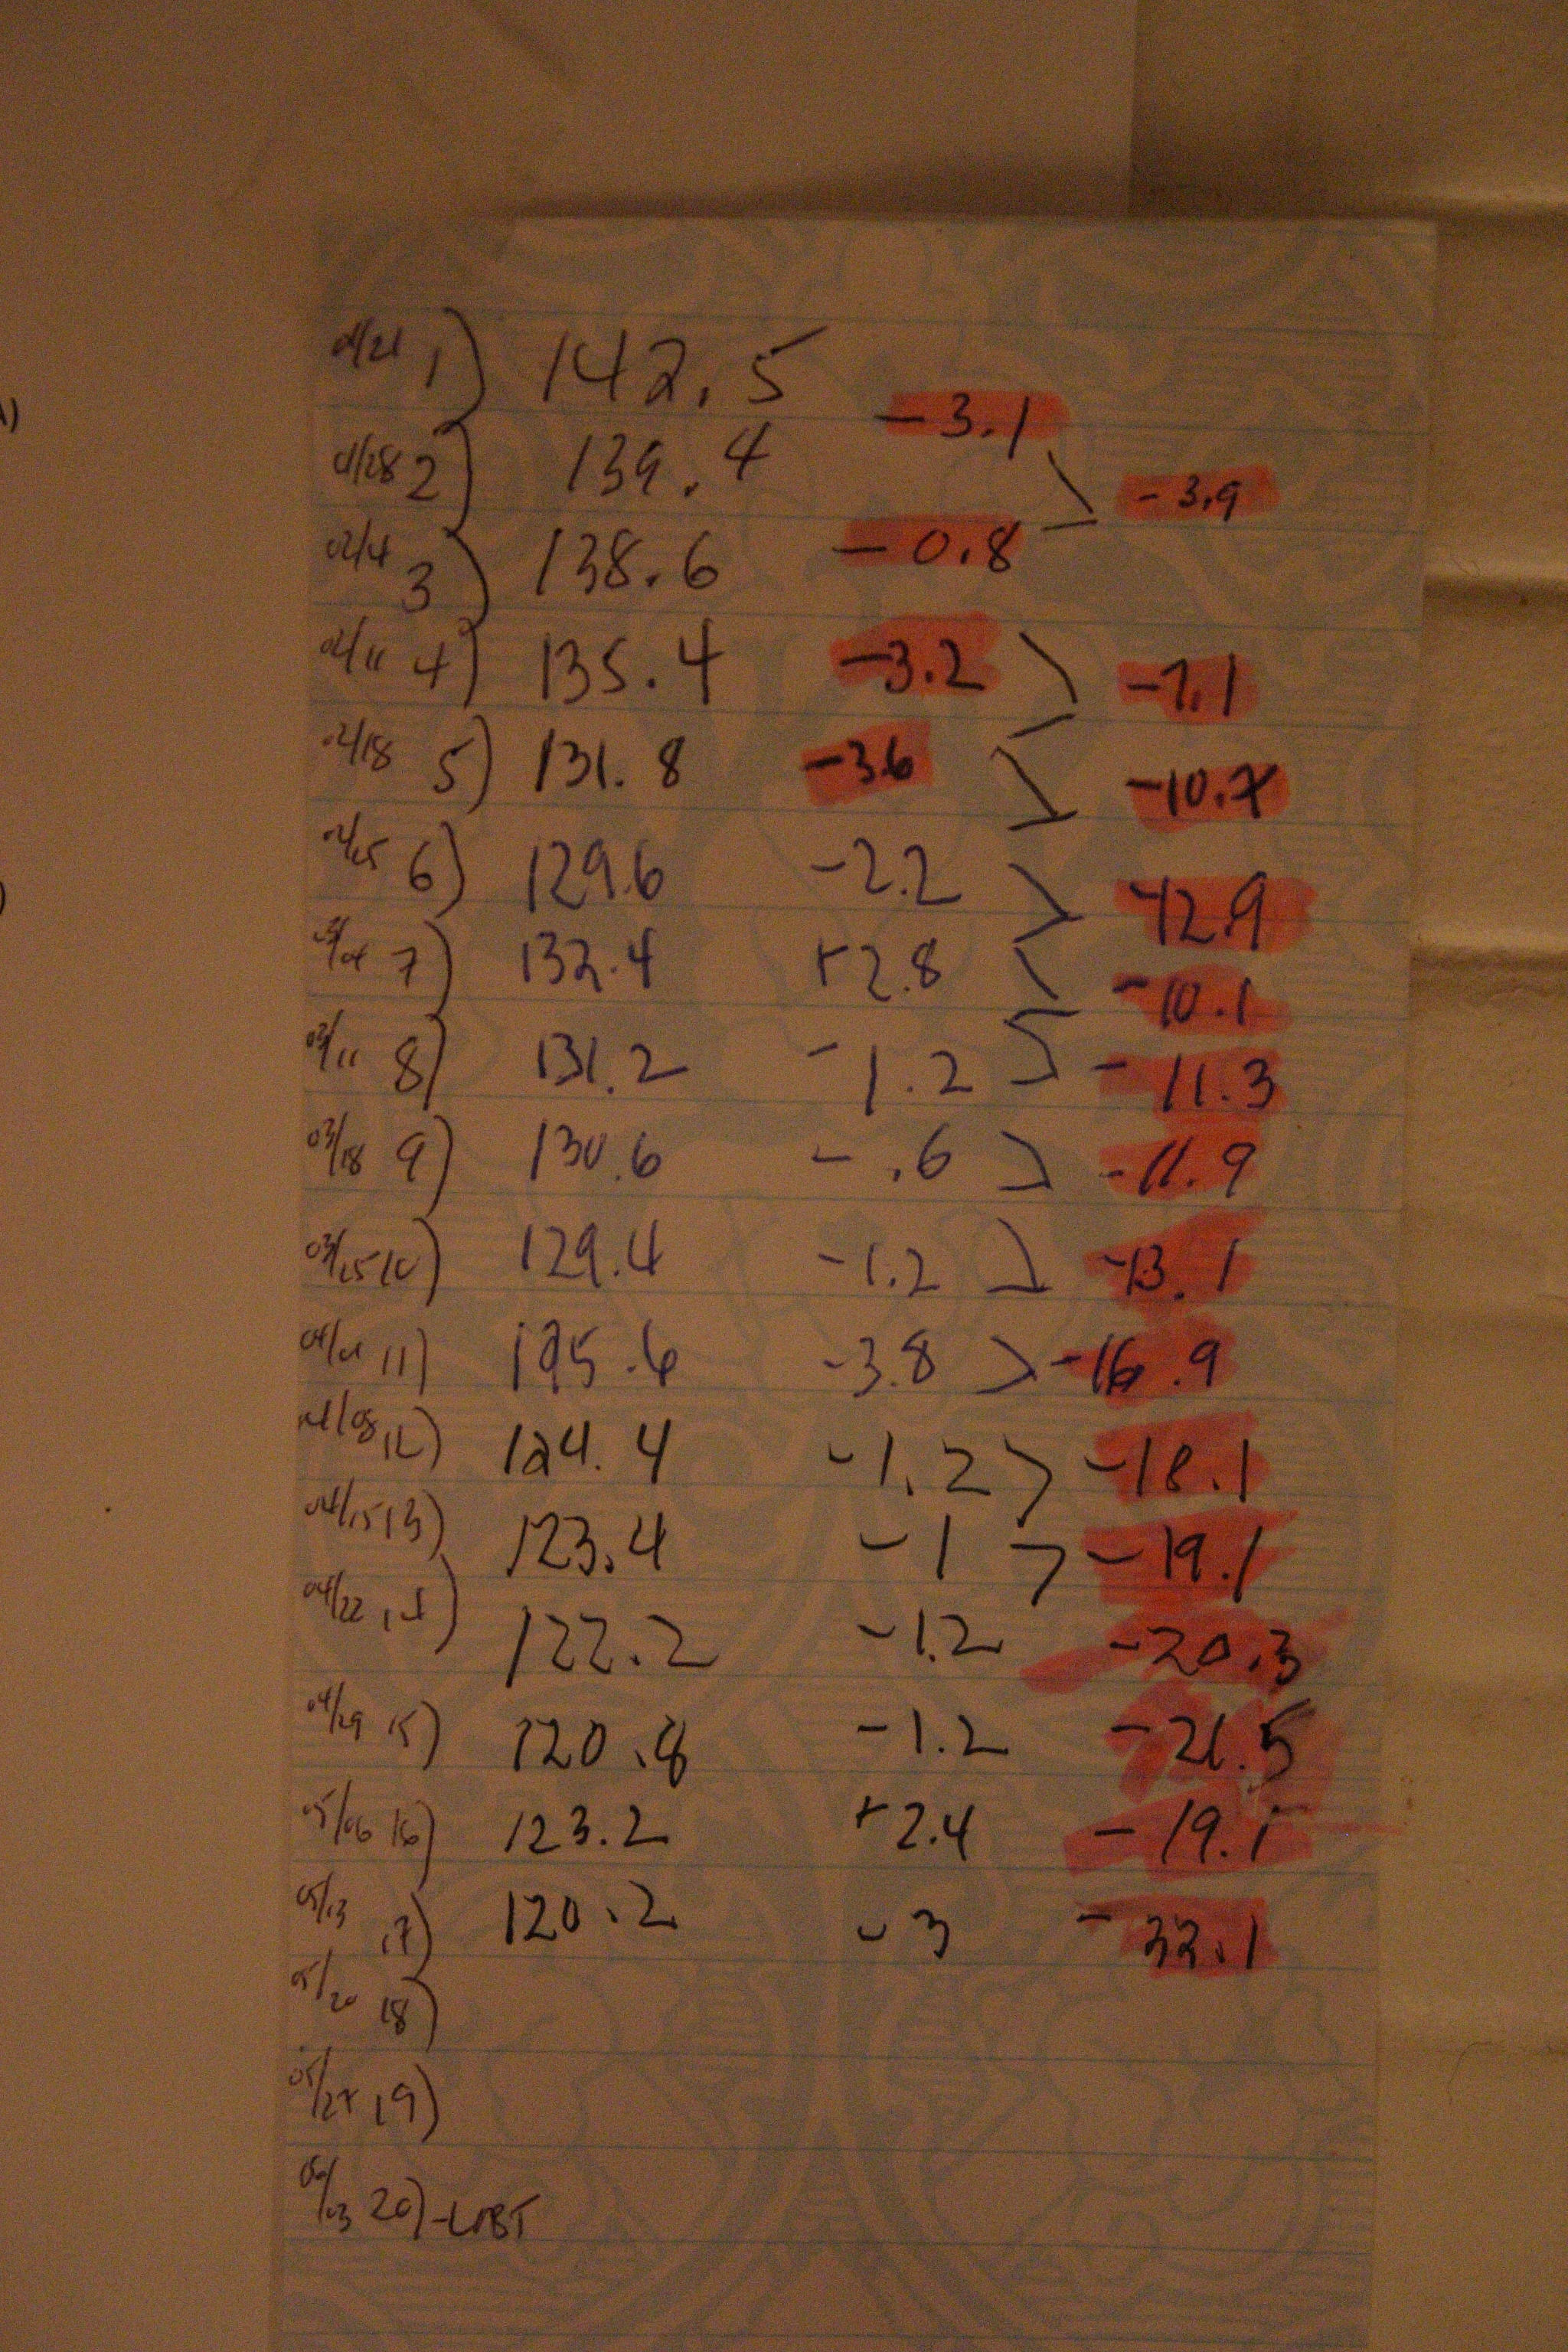 01/21 1) 142.5
-3.1
01/28 2) 139.4
-3.9
02/4 3) 138.6 -0.8
02/11 4) 135.4 -3.2 -7.1
02/18 5) 131.8 -3.6 -10.7
02/25 6) 129.6 -2.2 -12.9
03/04 7) 132.4 +2.8 -10.1
03/11 8) 131.2 -1.2 -11.3
03/18 9) 130.6 -.6 -11.9
03/25 10) 129.4 -1.2 -13.1
04/01 11) 125.6 -3.8 -16.9
04/08 12) 124.4 -1.2 -18.1
04/15 13) 123.4 -1 -19.1
04/22 14) 122.2 -1.2 -20.3
04/29 15) 120.8 -1.2 -21.5
05/06 16) 123.2 +2.4 -19.1
05/13 17) 120.2 -3 -22.1
05/20 18)
05/27 19)
06/03 20) -LAST